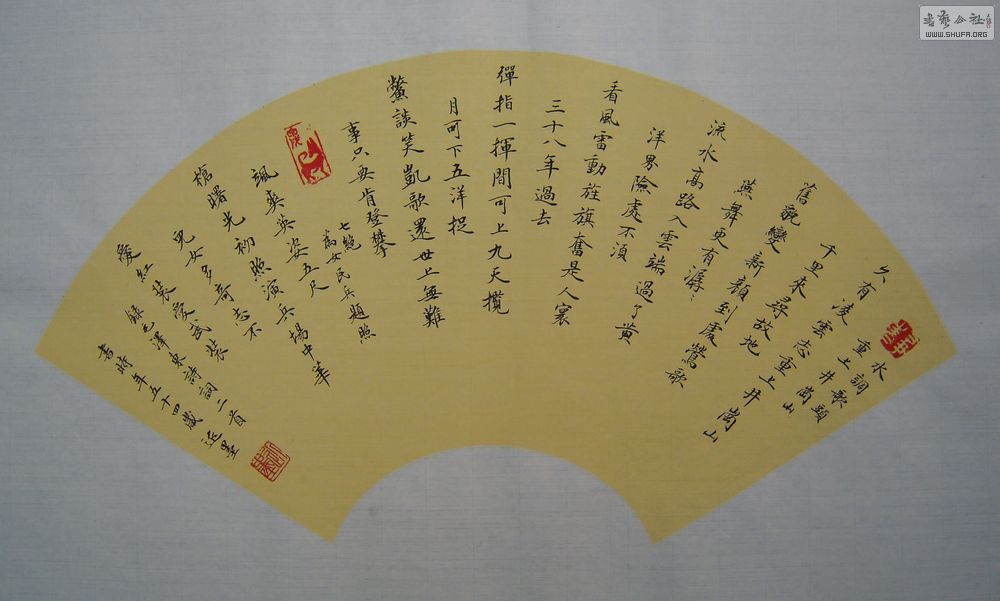 水調歌頭
重上井崗山
久有凌雲志重上井崗山
千里來尋故地
舊貌變新顔到處鶯歌
燕舞更有潺〻
流水高路入雲端過了黄
洋界險處不須
看風雷動旌旗奮是人寰
三十八年過去
彈指一揮間可上九天攬
月可下五洋捉
鱉談笑凱歌還世上無難
事只要肯登攀
七絶
為女民兵題照
颯爽英姿五尺
槍曙光初照演兵場中華
兒女多奇志不
愛紅裝愛武裝
録毛澤東詩詞二首
書時年五十四歲
書藝公社
WWW.SHUFA.ORG